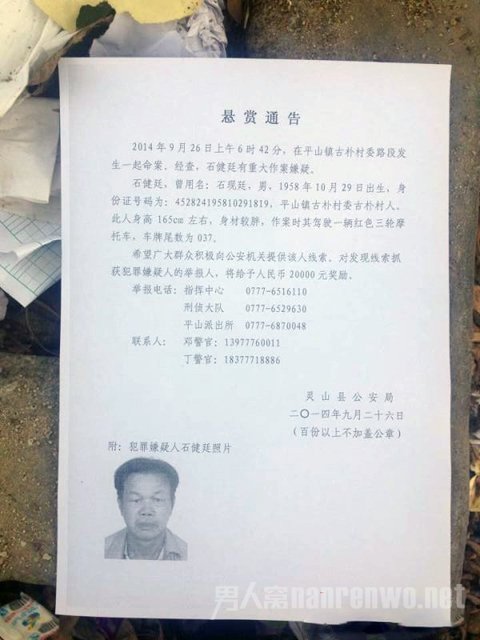 悬赏通告
2014年9月26日上午6时42分，在平山镇古朴村委路段发
生一起命案。经查，石健廷有重大作案嫌疑。
石健廷，曾用名：石现廷，男，1958年10月29日出生，身
份证号码为：452824195810291819，平山镇古朴村委古朴村人。
此人身高165cm左右，身材较胖，作案时其驾驶一辆红色三轮摩
托车，车牌尾数为037。
希望广大群众积极向公安机关提供该人线索。对发现线索抓
获犯罪嫌疑人的举报人，将给予人民币20000元奖励。
举报电话：指挥中心 0777-6516110
刑侦大队 0777-6529630
平山派出所 0777-6870048
联系人： 邓警官：13977760011
丁警官：18377718886
灵山县公安局
二〇一四年九月二十六日
（百份以上不加盖公章）
附：犯罪嫌疑人石健廷照片
男人窝nanrenwo.net